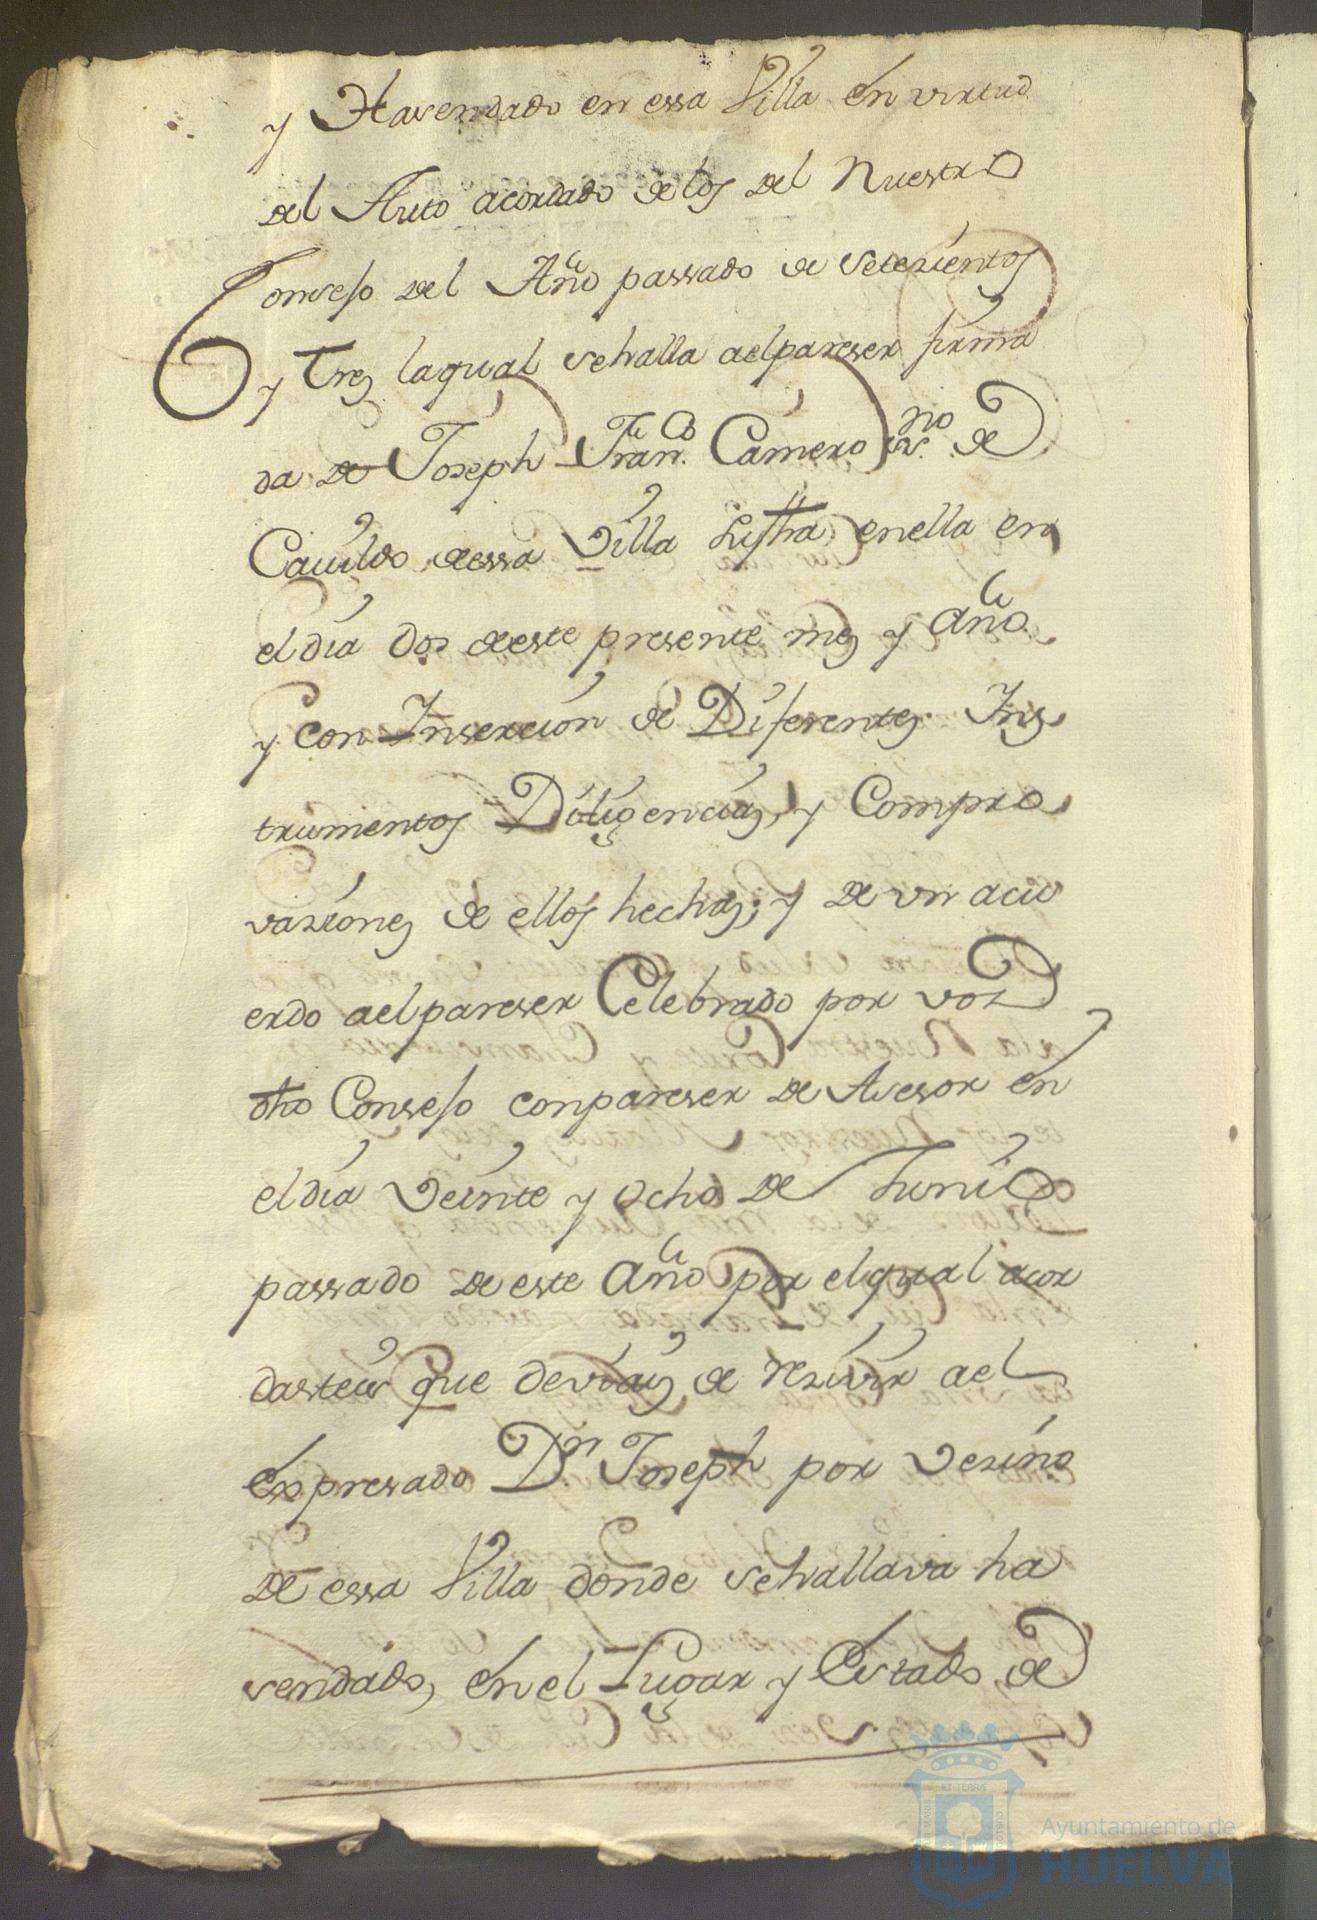 y Hasendado en essa Villa en virtud
del Auto acordado de los del Nuestro
Consejo del Año passado de Setezientos
y Tres laqual sehalla aelpareser firma
da de Joseph Franco. Camero no. de
Cauildo dessa Villa dha enella en
eldia dos deeste presente mes y Año
y con Insercion de Diferentes Ins
trumentos Diligencias, y Compro
vaziones de ellos hechas; y de vn acu
erdo aelpareser Celebrado por vos
dho Consejo conpareser de Asesor en
eldia Veinte y Ocho de Junio
passado de este Año por elqual acor
dasteis que deviais de rezivir ael
Expresado Dn. Joseph por Vezino
de essa Villa donde sehallava ha
sendado, en el Lugar y Estado de
Ayuntamiento de
HUELVA